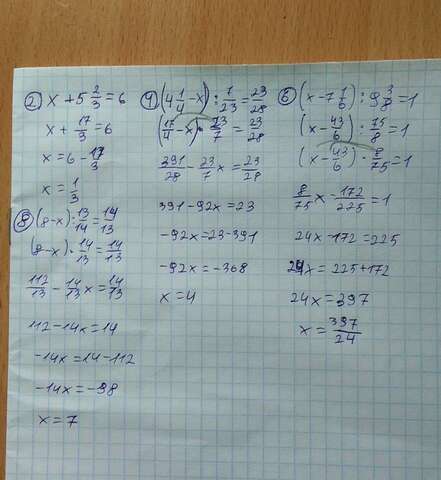 ② x + 5 2/3 = 6
x + 17/3 = 6
x = 6 - 17/3
x = 1/3
⑧ (8-x) : 13/14 = 14/13
(8-x) · 14/13 = 14/13
112/13 - 14/13 x = 14/13
112 - 14x = 14
-14x = 14 - 112
-14x = -98
x = 7
④ (4 1/4 - x) : 7/23 = 23/28
(17/4 - x) · 23/7 = 23/28
391/28 - 23/7 x = 23/28
391 - 92x = 23
-92x = 23 - 391
-92x = -368
x = 4
⑥ (x - 7 1/6) : 9 3/8 = 1
(x - 43/6) : 75/8 = 1
(x - 43/6) · 8/75 = 1
8/75 x - 172/225 = 1
24x - 172 = 225
24x = 225 + 172
24x = 397
x = 397/24